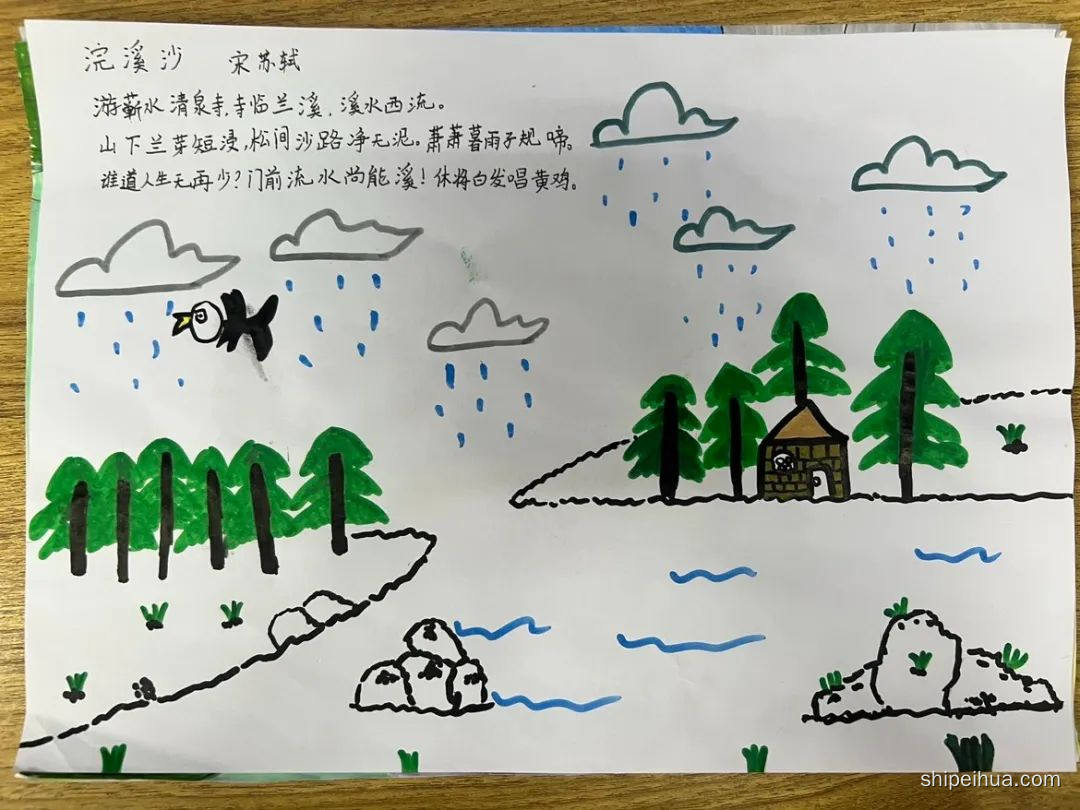 浣溪沙 宋苏轼
游蕲水清泉寺,寺临兰溪,溪水西流。
山下兰芽短浸,松间沙路净无泥。萧萧暮雨子规啼。
谁道人生无再少?门前流水尚能溪!休将白发唱黄鸡。
shipeihua.com